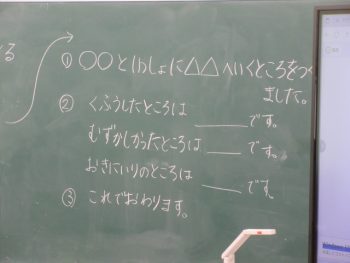 る
① ○○といっしょに△△へいくところをつく
ました。
② くふうしたところは ______ です。
むずかしかったところは ____ です。
おきにいりのところは ____ です。
③ これでおわります。